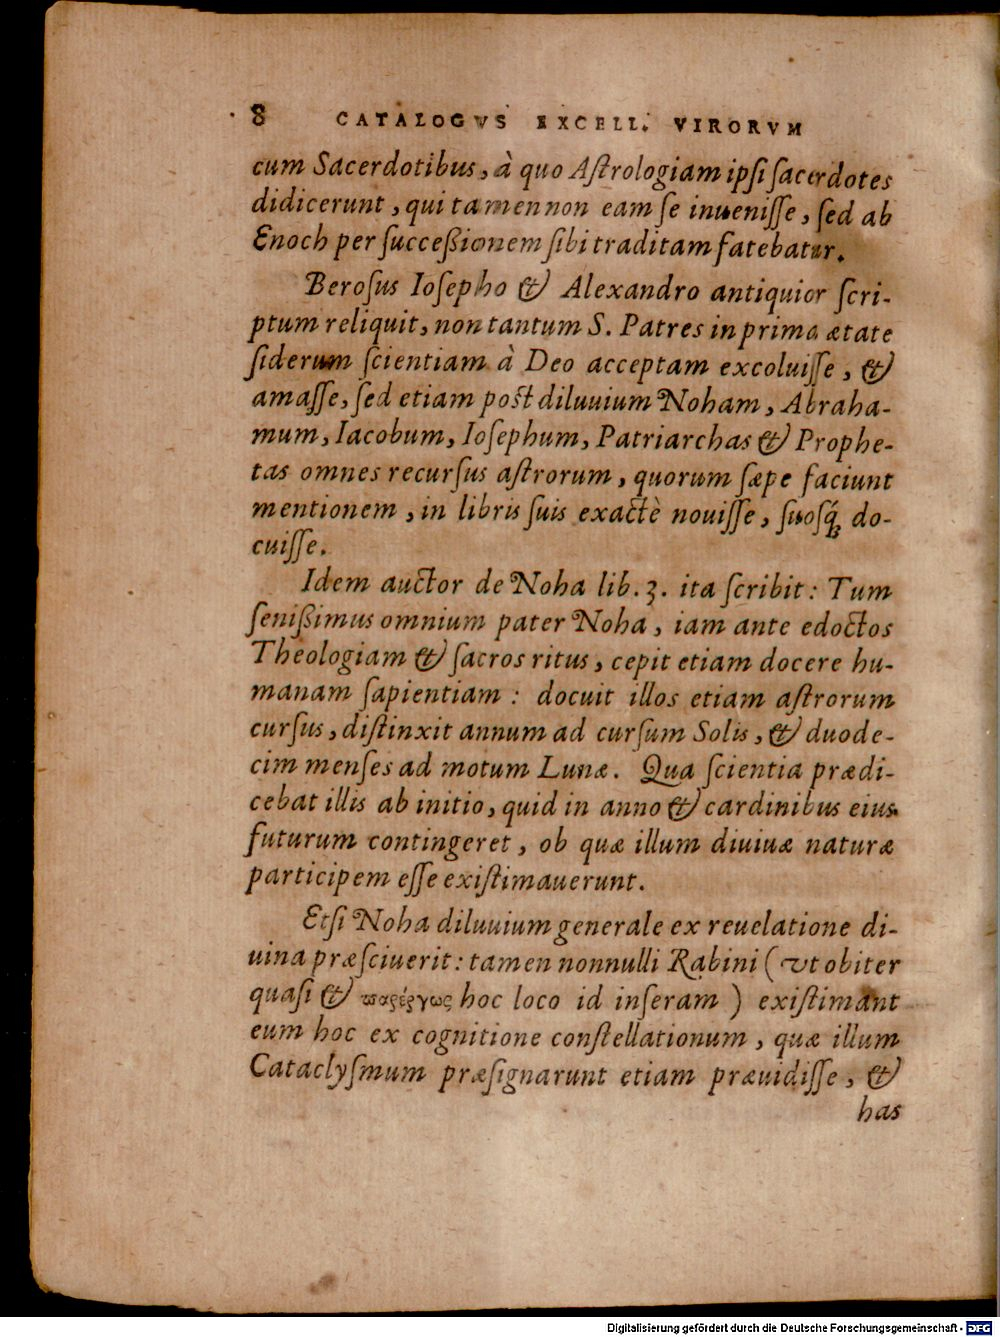 8 CATALOGVS EXCELL. VIRORVM
cum Sacerdotibus, à quo Aſtrologiam ipſi ſacerdotes
didicerunt, qui tamen non eam ſe inueniſſe, ſed ab
Enoch per ſucceßionem ſibi traditam fatebatur.
Beroſus Ioſepho & Alexandro antiquior ſcri-
ptum reliquit, non tantum S. Patres in prima ætate
ſiderum ſcientiam à Deo acceptam excoluiſſe, &
amaſſe, ſed etiam poſt diluuium Noham, Abraha-
mum, Iacobum, Ioſephum, Patriarchas & Prophe-
tas omnes recurſus aſtrorum, quorum ſæpe faciunt
mentionem, in libris ſuis exactè nouiſſe, ſuoſq́ꝫ do-
cuiſſe.
Idem auctor de Noha lib. 3. ita ſcribit: Tum
ſenißimus omnium pater Noha, iam ante edoctos
Theologiam & ſacros ritus, cepit etiam docere hu-
manam ſapientiam: docuit illos etiam aſtrorum
curſus, diſtinxit annum ad curſum Solis, & duode-
cim menſes ad motum Lunæ. Qua ſcientia prædi-
cebat illis ab initio, quid in anno & cardinibus eius
futurum contingeret, ob quæ illum diuiuæ naturæ
participem eſſe exiſtimauerunt.
Etſi Noha diluuium generale ex reuelatione di-
uina præſciuerit: tamen nonnulli Rabini (vt obiter
quaſi & παρέργως hoc loco id inſeram) exiſtimant
eum hoc ex cognitione conſtellationum, quæ illum
Cataclyſmum præſignarunt etiam præuidiſſe, &
has
Digitalisierung gefördert durch die Deutsche Forschungsgemeinschaft - DFG